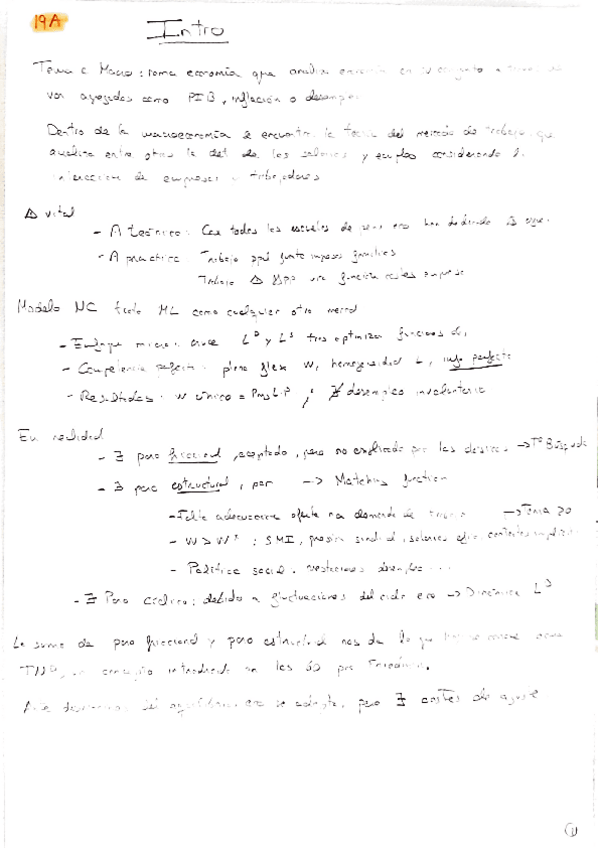 19A
Intro
Tema e Macro: rama economía que analiza economía en su conjunto a
var agregadas como PIB, inflación o desempleo
Dentro de la macroeconomía se encuentra la teoría del mercado de trabajo, que
analiza entre otros la det de los salarios y empleo considerando la
interacción de empresas y trabajadores
Δ vital
- A teórico: Casi todas las escuelas de pens eco han dedicado
- A práctico: Trabajo ppal fuente ingresos familias
Trabajo función costes empresa
Modelo NC trata ML como cualquier otro mercad
- Enfoque micro: cruce L^D y L^S tras optimizar funciones
- Competencia perfecta: plena flex W, homogeneidad L, info perfecta
- Resultados: W único = PmgL·P ; ∄ desempleo involuntario
En realidad
- ∃ paro friccional, aceptado, pero no explicado por los clásicos → Tª Búsqueda
- ∃ paro estructural, por → Matching function
- Falta adecuación oferta a demanda de trabajo → Tema 20
- W > W* : SMI, presión sindical, salarios efic, contratos implícitos
- Política social: prestaciones desempleo...
- ∃ Paro cíclico: debido a fluctuaciones del ciclo eco → Dinámica L^D
La suma de paro friccional y paro estructural nos da lo que se conoce como
un concepto introducido en los 60 por Friedman.
del equilibrio eco se adapta, pero ∃ costes de ajuste
1